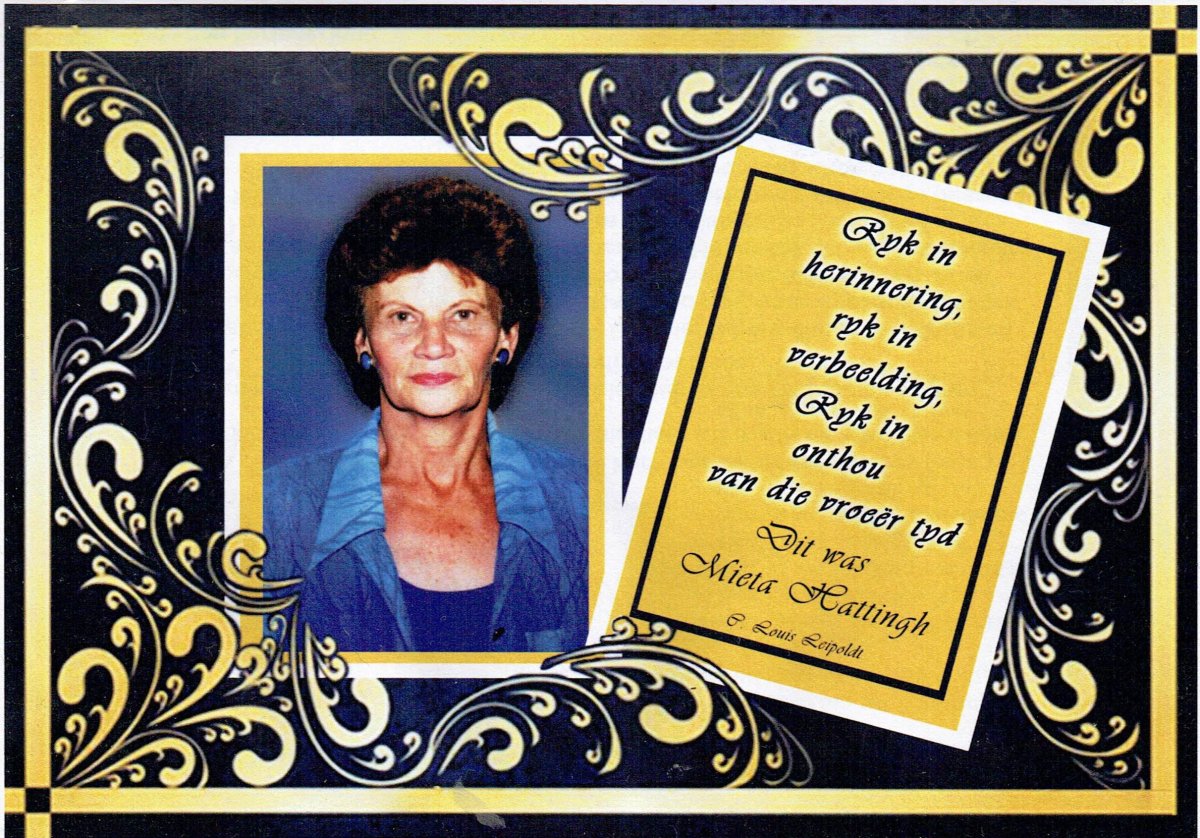 Ryk in
herinnering,
ryk in
verbeelding,
Ryk in
onthou
van die vroeër tyd
Dit was
Mieta Hattingh
C. Louis Leipoldt